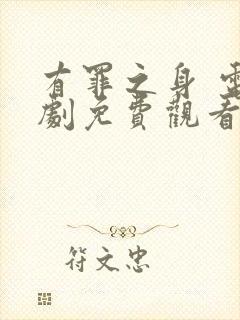 有罪之身 電
劇免費觀看
符文忠